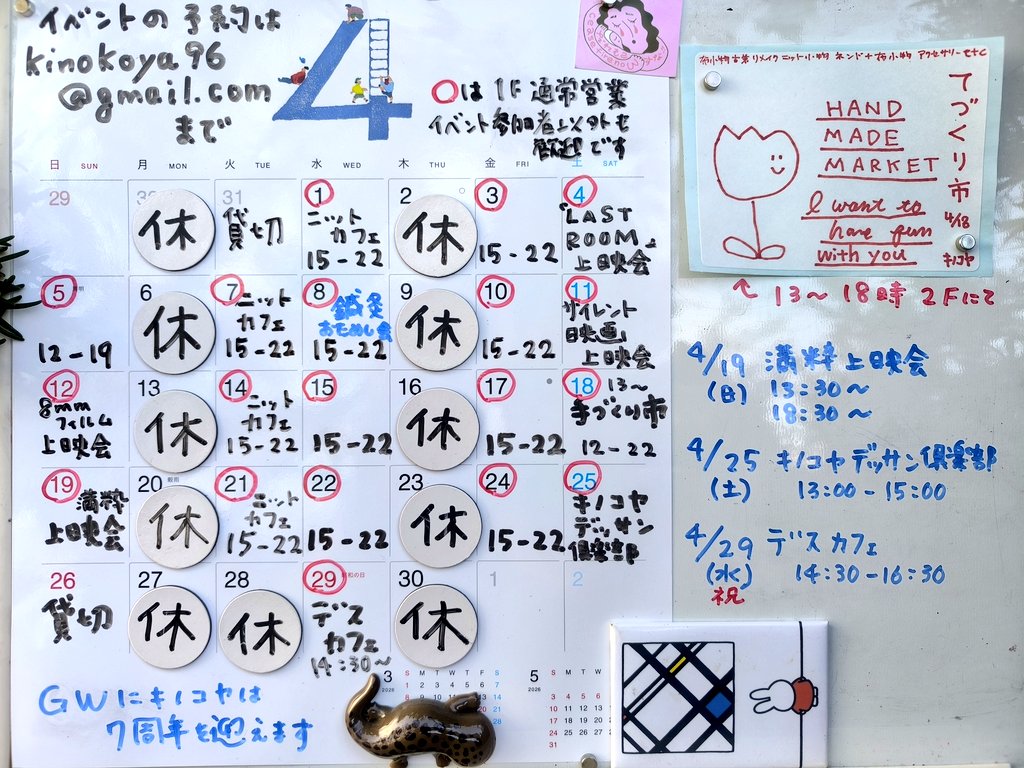 イベントの予約は
kinokoya96
@gmail.com
まで
4
○は1F通常営業
イベント参加者以外も
歓迎です
日 SUN 月 MON 火 TUE 水 WED 木 THU 金 FRI 土 SAT
29 30 31 1 2 3 4
休
貸切
ニット
カフェ
15-22
休
15-22
「LAST
ROOM」
上映会
5 6 7 8 9 10 11
12-19
休
ニット
カフェ
15-22
鍼灸
おためし会
15-22
休
15-22
サイレント
映画
上映会
12 13 14 15 16 17 18
8mm
フィルム
上映会
休
ニット
カフェ
15-22
15-22
休
15-22
13〜
手づくり市
12-22
19 20 21 22 23 24 25
満粋
上映会
休
ニット
カフェ
15-22
15-22
休
15-22
キノコヤ
デッサン
倶楽部
26 27 28 29 昭和の日 30 1 2
貸切
休
休
デス
カフェ
14:30〜
休
GWにキノコヤは
7周年を迎えます
3
2026
S M T W T F S
1 2 3 4 5 6 7
5
2026
S M T W
3 4 5 6
10 11 12 13
17 18 19 20
24 25 26 27
31
てづくり市
4/18
キノコヤ
HAND
MADE
MARKET
I want to
have fun
with you
↑13〜18時 2Fにて
4/19 満粋上映会
(日) 13:30〜
18:30〜
4/25 キノコヤデッサン倶楽部
(土) 13:00-15:00
4/29 デスカフェ
(水) 14:30-16:30
祝